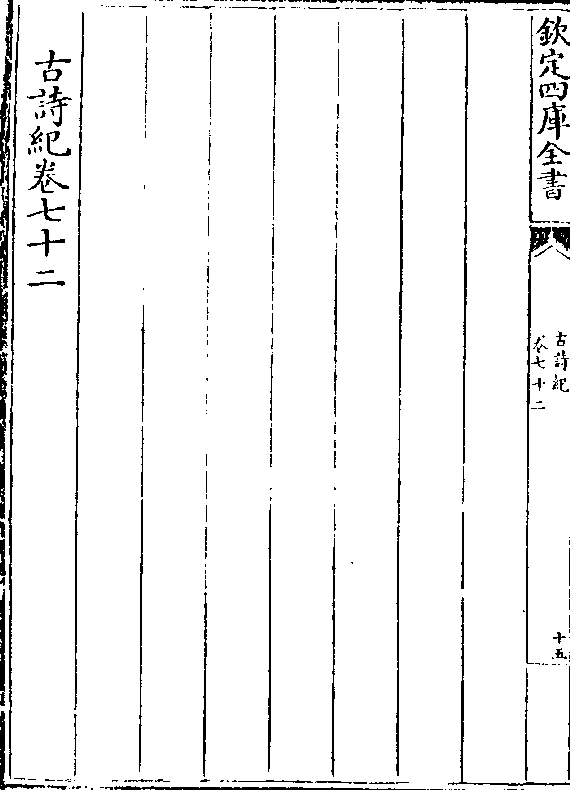 欽定四庫全書
古詩紀
卷七十二
十五
古詩紀卷七十二